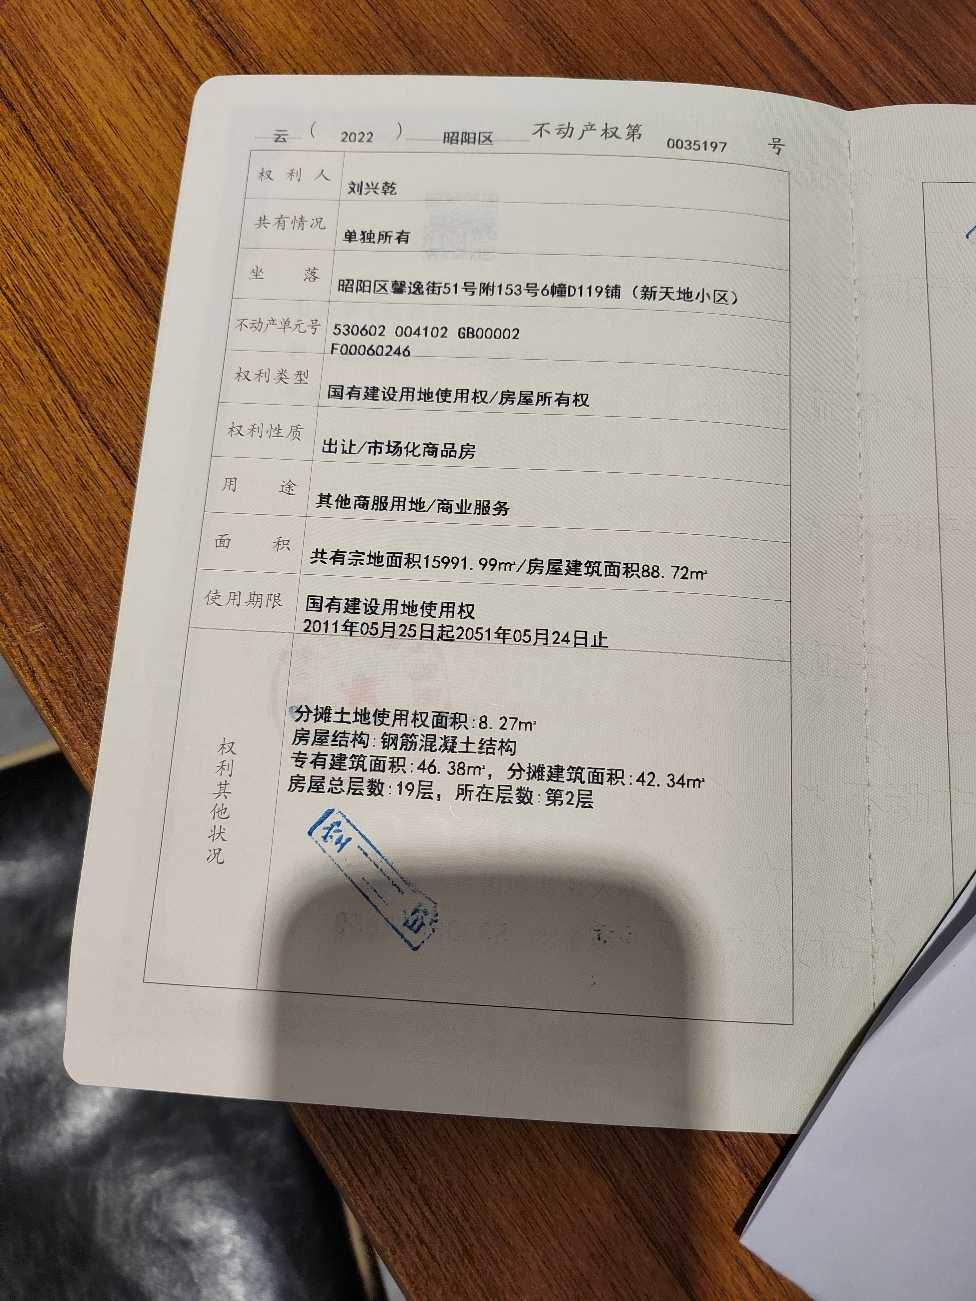 云（2022）昭阳区不动产权第0035197号
权利人 刘兴乾
共有情况 单独所有
坐落 昭阳区馨逸街51号附153号6幢D119铺（新天地小区）
不动产单元号 530602 004102 GB00002
F00060246
权利类型 国有建设用地使用权/房屋所有权
权利性质 出让/市场化商品房
用途 其他商服用地/商业服务
面积 共有宗地面积15991.99㎡/房屋建筑面积88.72㎡
使用期限 国有建设用地使用权
2011年05月25日起2051年05月24日止
权利其他状况
分摊土地使用权面积:8.27㎡
房屋结构:钢筋混凝土结构
专有建筑面积:46.38㎡，分摊建筑面积:42.34㎡
房屋总层数:19层，所在层数:第2层